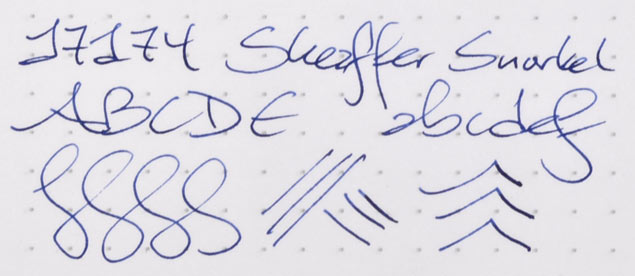 17174 Sheaffer Snorkel
ABCDE abcdefg